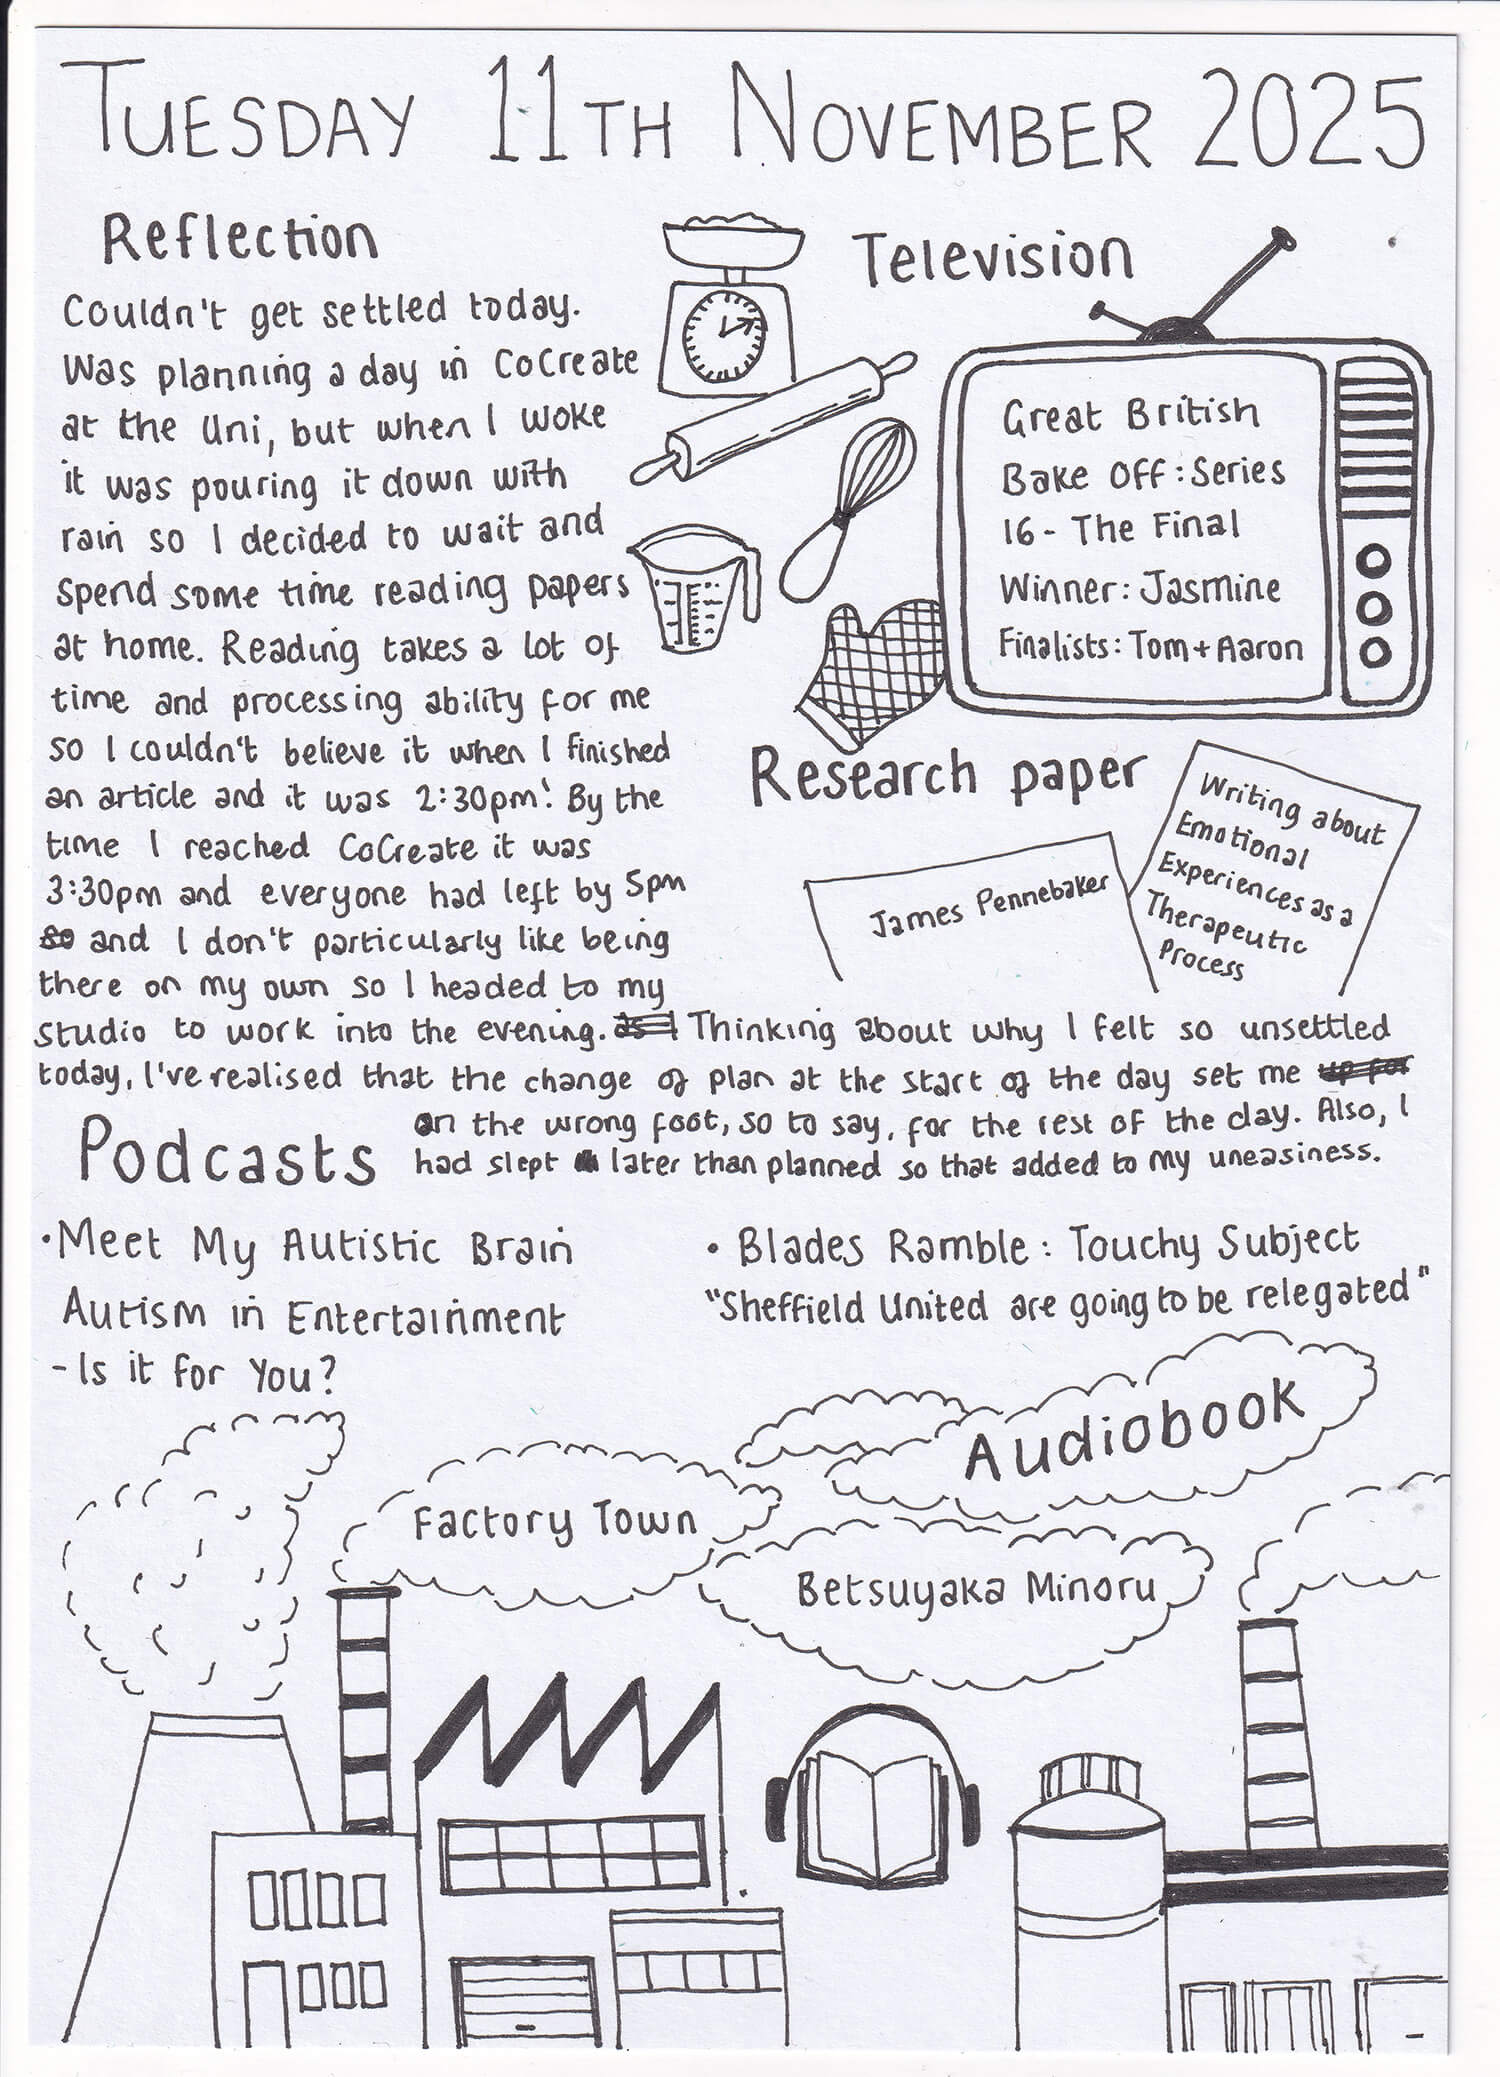 TUESDAY 11TH NOVEMBER 2025
Reflection
Couldn't get settled today.
Was planning a day in CoCreate
at the Uni, but when I woke
it was pouring it down with
rain so I decided to wait and
spend some time reading papers
at home. Reading takes a lot of
time and processing ability for me
so I couldn't believe it when I finished
an article and it was 2:30pm! By the
time I reached CoCreate it was
3:30pm and everyone had left by 5pm
so and I don't particularly like being
there on my own so I headed to my
studio to work into the evening. as I Thinking about why I felt so unsettled
today, I've realised that the change of plan at the start of the day set me up for
on the wrong foot, so to say, for the rest of the day. Also, I
had slept later than planned so that added to my uneasiness.
Television
Great British
Bake Off: Series
16 - The Final
Winner: Jasmine
Finalists: Tom + Aaron
Research paper
James Pennebaker
Writing about
Emotional
Experiences as a
Therapeutic
Process
Podcasts
• Meet My Autistic Brain
Autism in Entertainment
- Is it for You?
• Blades Ramble: Touchy Subject
"Sheffield United are going to be relegated"
Audiobook
Factory Town
Betsuyaka Minoru